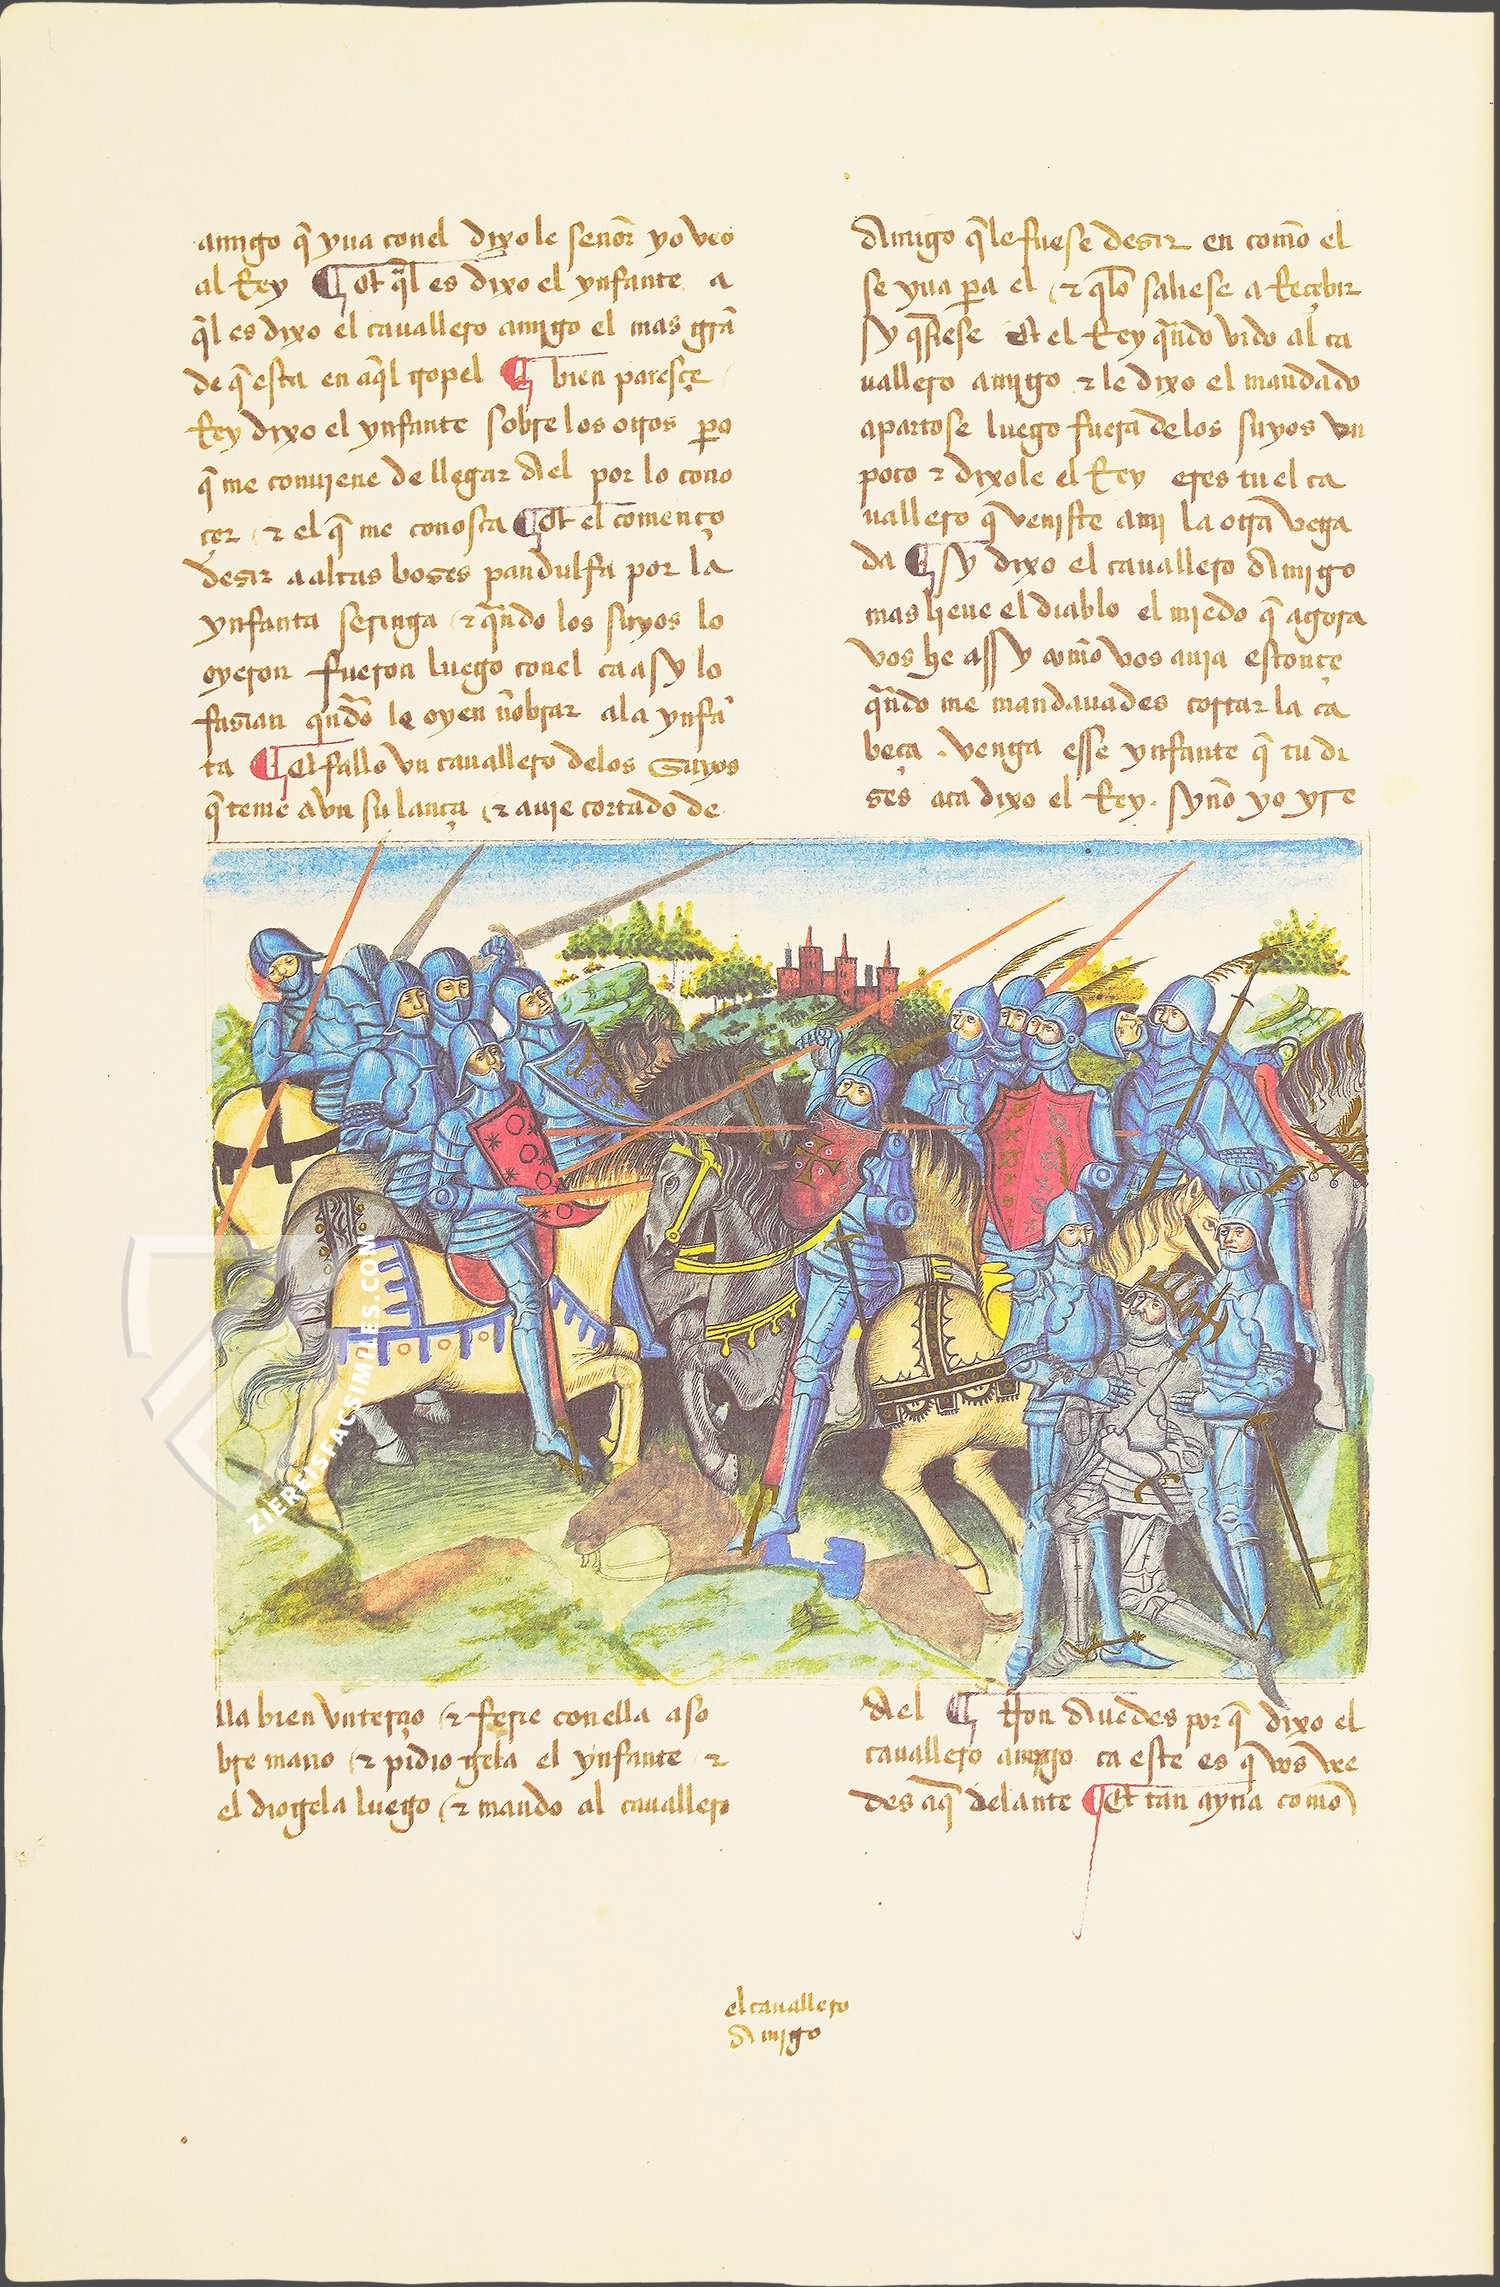 amigo q̃ yua conel dixole señor yo veo
al Rey ¶ Et q̃l es dixo el ynfante a
q̃l es dixo el cauallero amigo el mas grã
de q̃ esta en aq̃l tropel ¶ bien paresçe
Rey dixo el ynfante sobre los otros pero
q̃ me conuiene de llegar a el por lo cono
çer ⁊ el q̃ me conosca ¶ Et el començo
desir a altas boses pandulfa por la
ynfanta seringa ⁊ q̃ndo los suyos lo
oyeron fueron luego conel ca asy lo
fasian q̃ndo le oyen nõbrar ala ynfã
ta ¶ Et fallo vn cauallero delos suyos
q̃ tenie avn su lança ⁊ auie cortado de
lla bien vn terçio ⁊ ferie conella a so
bre mano ⁊ pidio gela el ynfante ⁊
el diogela luego ⁊ mando al cauallero
Amigo q̃ le fuese desir en como el
se yua pa el ⁊ q̃lo saliese a Recebir
sy q̃siese Et el Rey q̃ndo vido al ca
uallero amigo ⁊ le dixo el mandado
apartose luego fuera delos suyos vn
poco ⁊ dixole el Rey eres tu el ca
uallero q̃ veniste ami la otra vega
da ¶ sy dixo el cauallero Amigo
mas lieue el diablo el miedo q̃ agora
vos he assy como vos auia estonçe
q̃ndo me mandauades cortar la ca
beça . venga esse ynfante q̃ tu di
ses aca dixo el Rey . syno yo yre
a el ¶ Non auedes por q̃ dixo el
cauallero amigo ca este es q̃ vos vee
des aq̃ delante ¶ Et tan ayna como
el cauallero
Amigo
ZIEREISFACSIMILES.COM